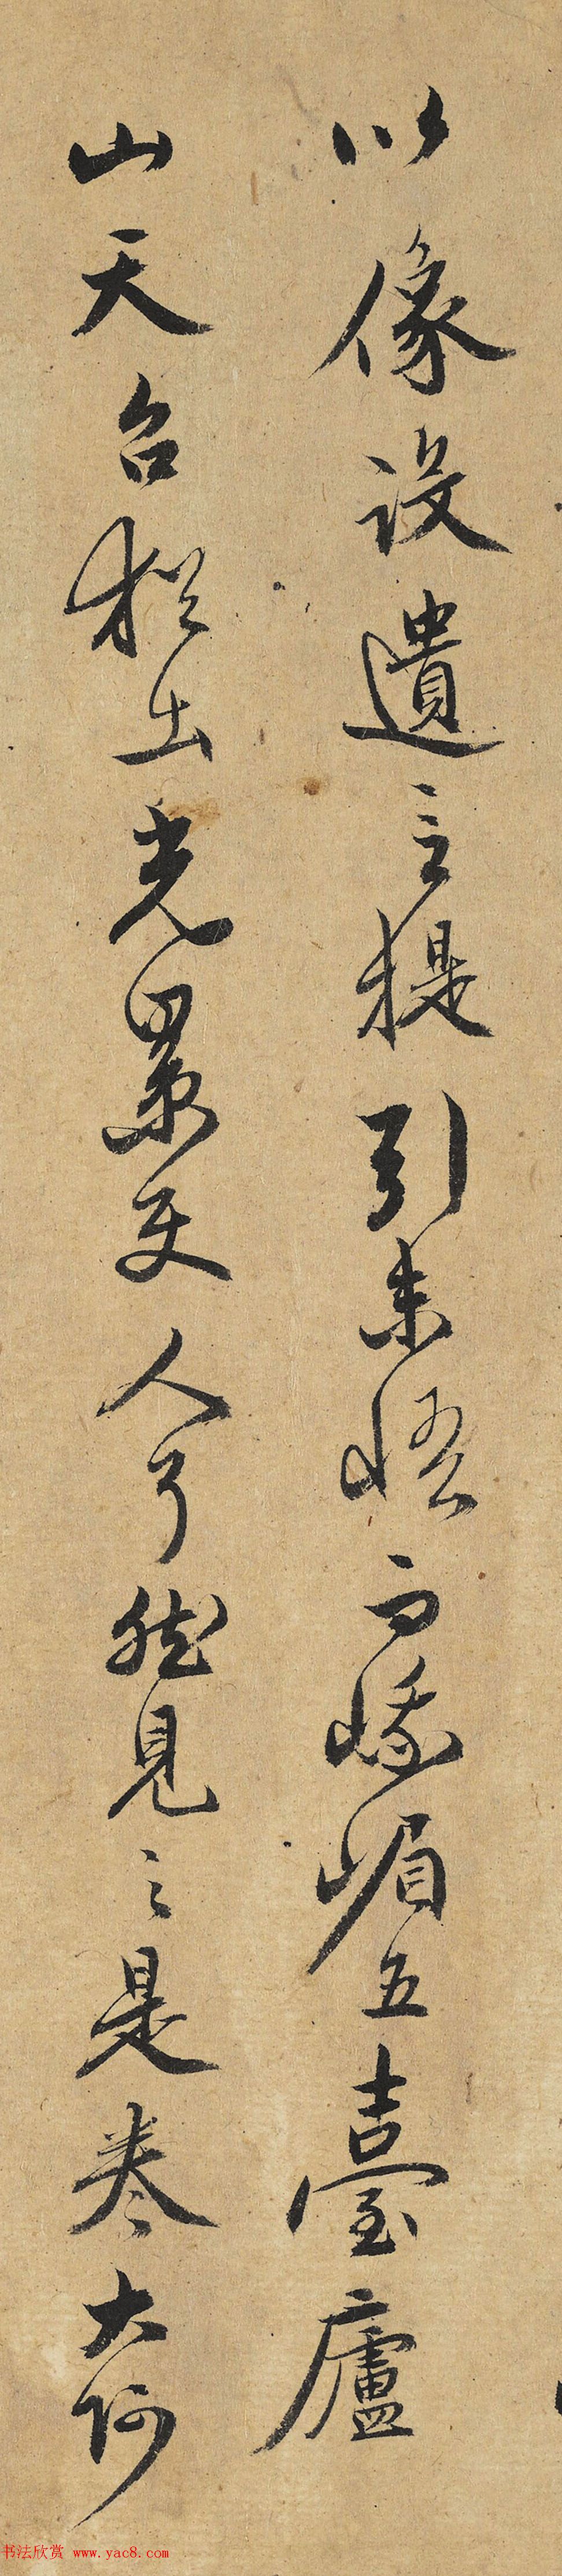 以像設遺言提引未悟而峨嵋五臺廬
山天台猶出光景使人了然見之是卷大阿
书法欣赏 www.yac8.com